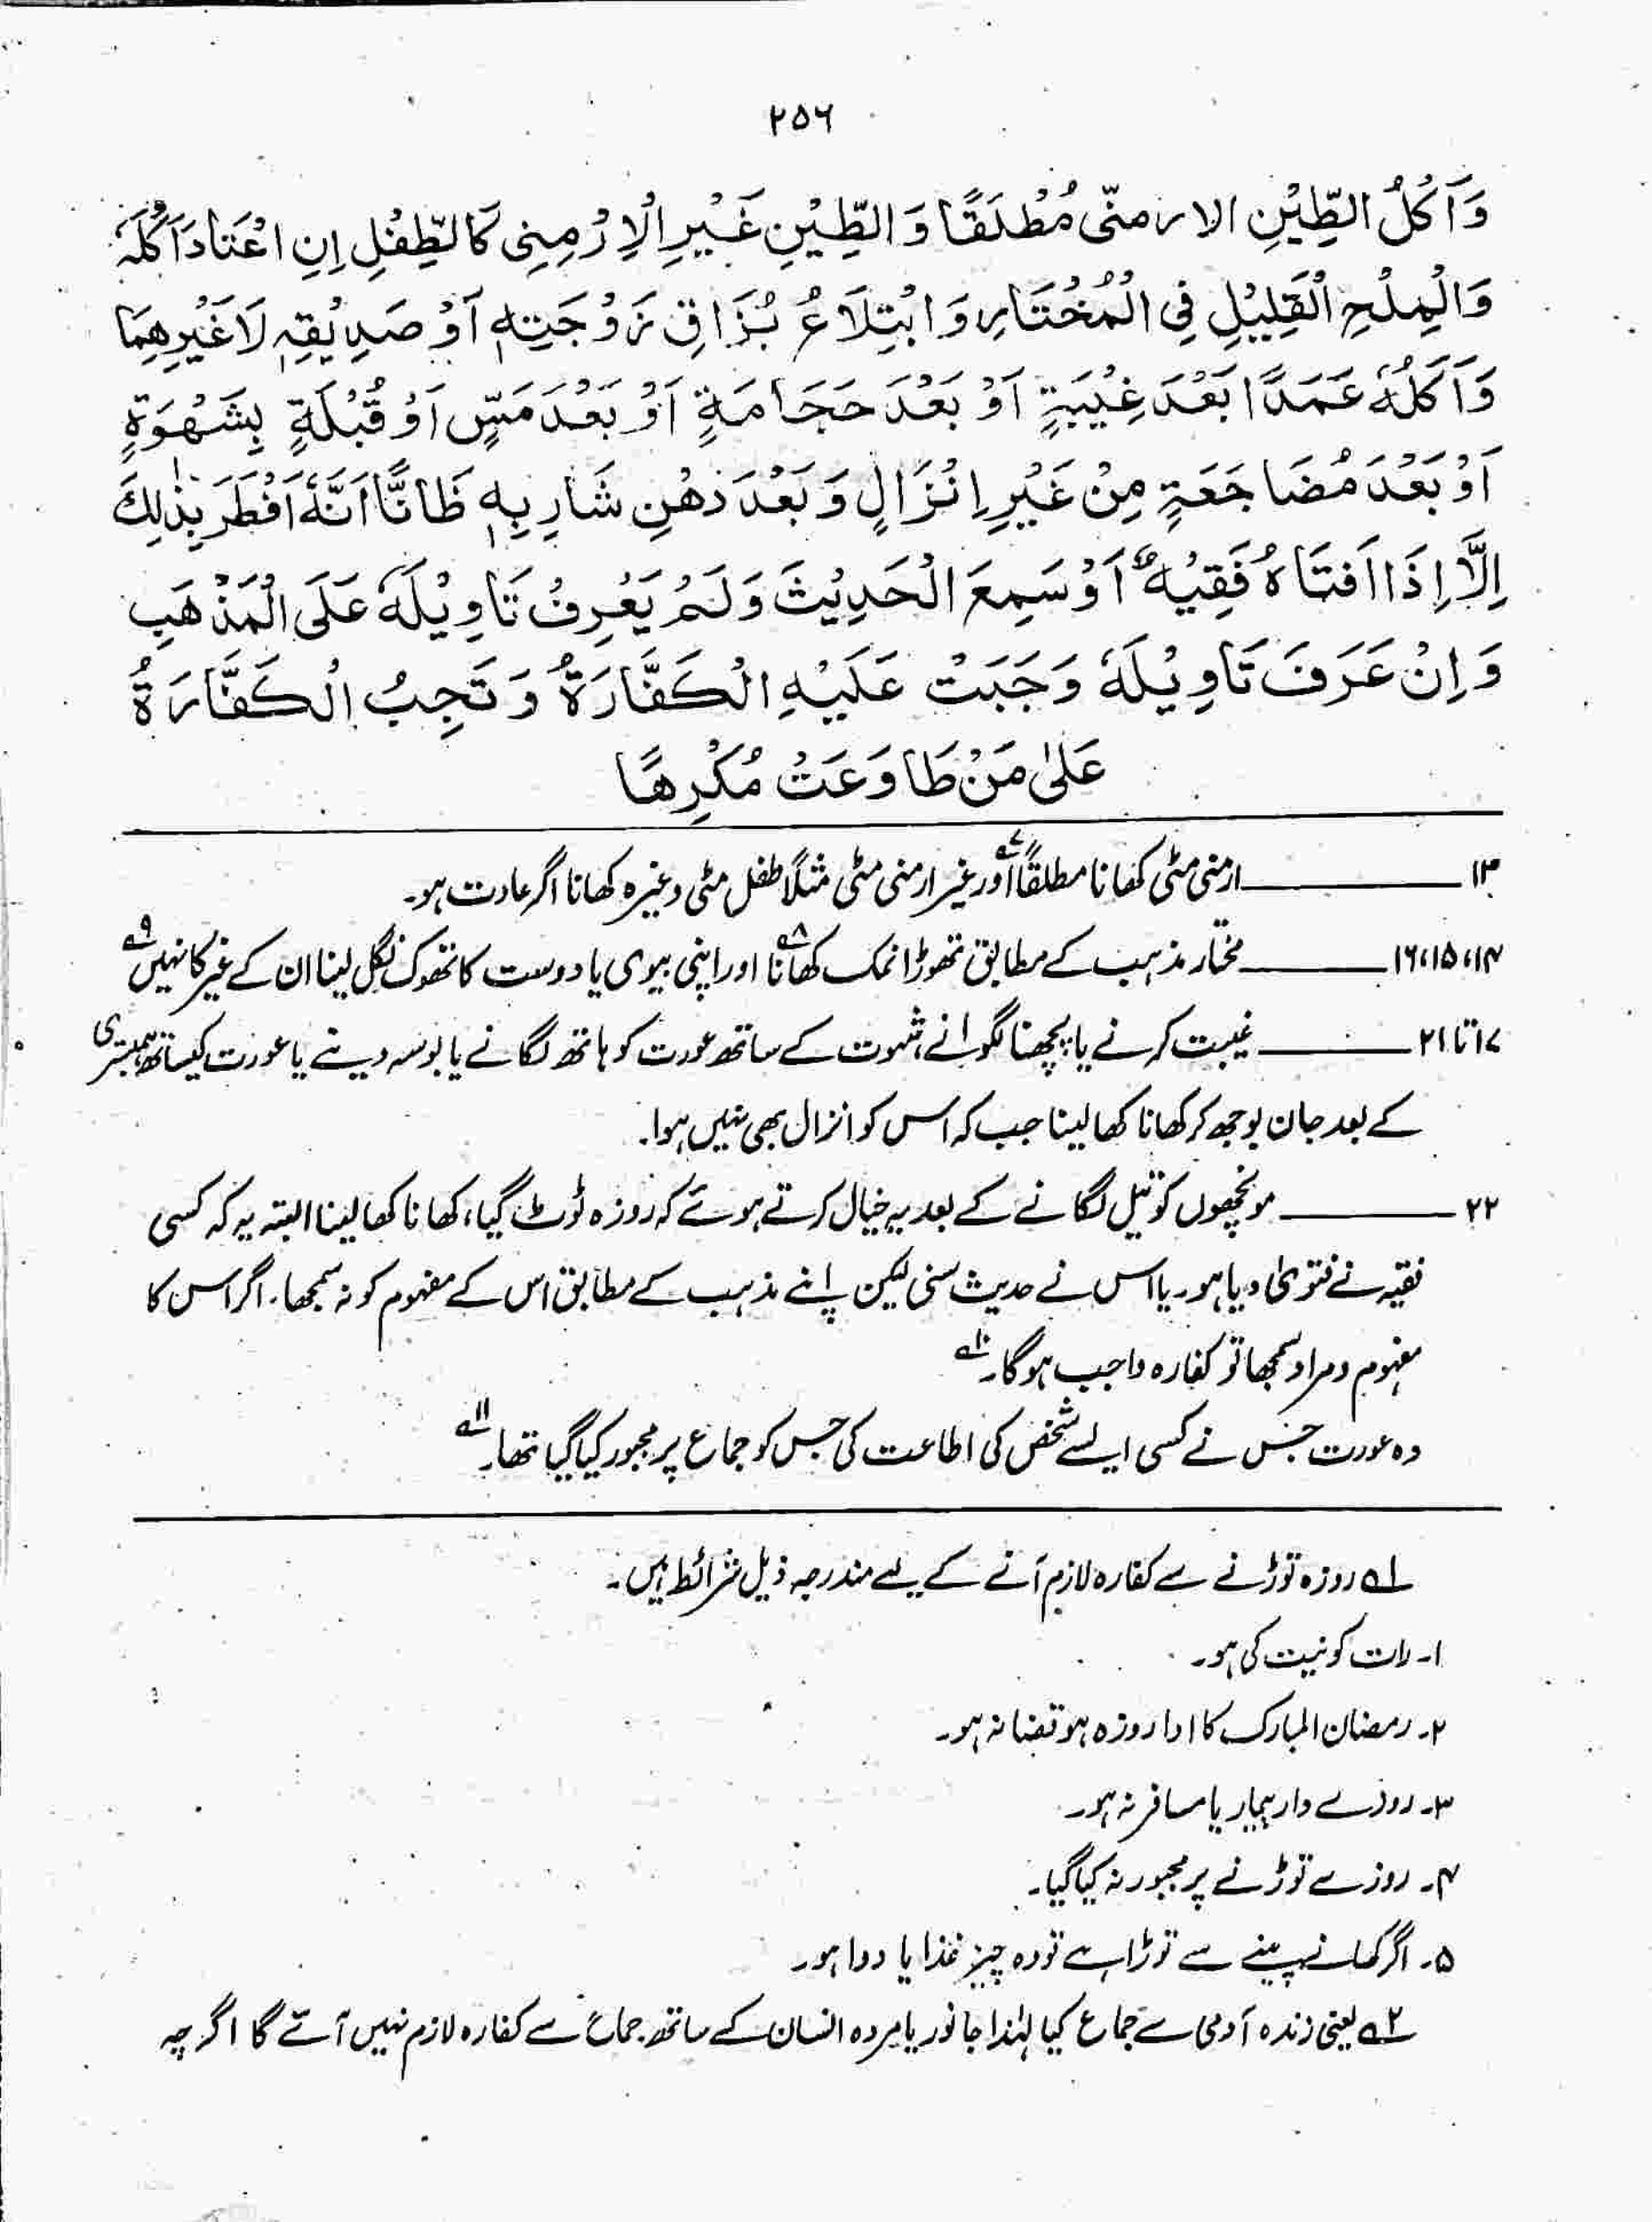 ۲۵۶
وَاَكْلُ الطِّيْنِ الارمنّی مُطْلَقًا وَالطِّيْنِ غَيْرِ الْاِرْمِنِی كَالطِّفْلِ اِنِ اعْتَادَ اَكْلَهٗ
وَالْمِلْحِ الْقَلِيْلِ فِی الْمُخْتَارِ وَابْتِلَاعُ بُزَاقِ زَوْجَتِهٖ اَوْ صَدِيْقِهٖ لَا غَيْرِهِمَا
وَاَكَلُهٗ عَمَدًا بَعْدَ غِيْبَةٍ اَوْ بَعْدَ حَجَامَةٍ اَوْ بَعْدَ مَسٍّ اَوْ قُبْلَةٍ بِشَهْوَةٍ
اَوْ بَعْدَ مُضَاجَعَةٍ مِنْ غَيْرِ اِنْزَالٍ وَبَعْدَ دَهْنِ شَارِبِهٖ ظَانًّا اَنَّهٗ اَفْطَرَ بِذٰلِكَ
اِلَّا اِذَا اَفتَاهُ فَقِيْهٌ اَوْ سَمِعَ الْحَدِيْثَ وَلَمْ يَعْرِفْ تَاوِيْلَهٗ عَلَی الْمَذْهَبِ
وَاِنْ عَرَفَ تَاوِيْلَهٗ وَجَبَتْ عَلَيْهِ الْكَفَّارَةُ وَتَجِبُ الْكَفَّارَةُ
عَلیٰ مَنْ طَاوَعَتْ مُكْرِهًا
۱۳ ــــــ ارمنی مٹی کھانا مطلقاً۷ اور غیر ارمنی مٹی مثلاً طفل مٹی وغیرہ کھانا اگر عادت ہو۔
۱۴،۱۵،۱۶ ــــــ مختار مذہب کے مطابق تھوڑا نمک کھانا۸ اور اپنی بیوی یا دوست کا تھوک نگل لینا ان کے غیر کا نہیں۹
۱۷ تا ۲۱ ــــــ غیبت کرنے یا پچھنا لگوانے شہوت کے ساتھ عورت کو ہاتھ لگانے یا بوسہ دینے یا عورت کیساتھ ہمبستری
کے بعد جان بوجھ کر کھانا کھا لینا جب کہ اس کو انزال بھی نہیں ہوا۔
۲۲ ــــــ مونچھوں کو تیل لگانے کے بعد یہ خیال کرتے ہوئے کہ روزہ ٹوٹ گیا، کھانا کھا لینا البتہ یہ کہ کسی
فقیہ نے فتویٰ دیا ہو۔ یا اس نے حدیث سنی لیکن اپنے مذہب کے مطابق اس کے مفہوم کو نہ سمجھا۔ اگر اس کا
مفہوم و مراد سمجھا تو کفارہ واجب ہوگا۔۱۰
وہ عورت جس نے کسی ایسے شخص کی اطاعت کی جس کو جماع پر مجبور کیا گیا تھا۔۱۱
۱ روزہ توڑنے سے کفارہ لازم آنے کے لیے مندرجہ ذیل شرائط ہیں۔
۱۔ رات کو نیت کی ہو۔
۲۔ رمضان المبارک کا ادا روزہ ہو قضا نہ ہو۔
۳۔ روزے دار بیمار یا مسافر نہ ہو۔
۴۔ روزے توڑنے پر مجبور نہ کیا گیا۔
۵۔ اگر کھانے پینے سے توڑا ہے تو وہ چیز غذا یا دوا ہو۔
۲ یعنی زندہ آدمی سے جماع کیا لہٰذا جانور یا مردہ انسان کے ساتھ جماع سے کفارہ لازم نہیں آئے گا اگرچہ